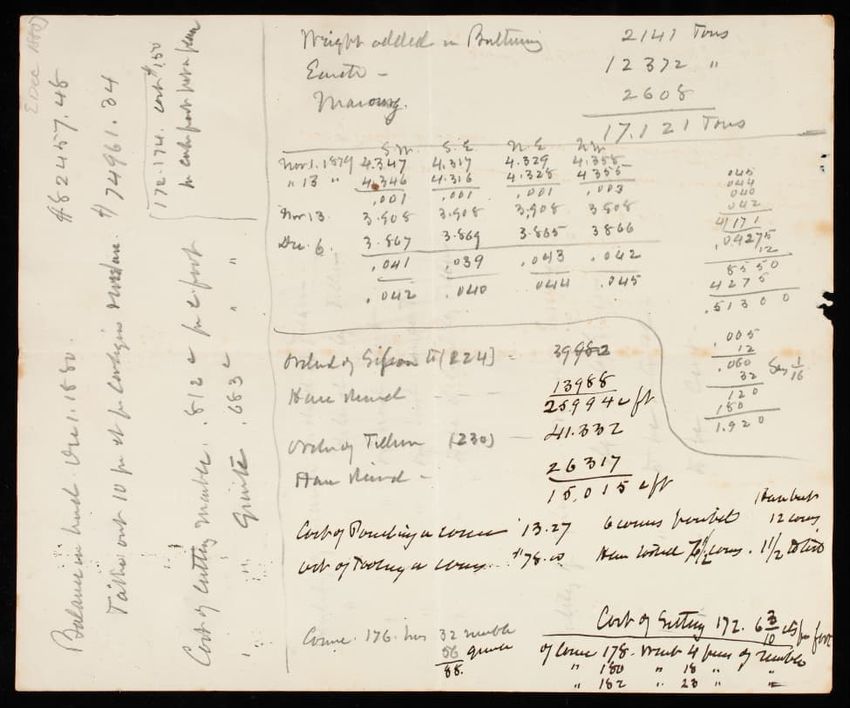 Weight added in Buttering 2141 Tons
Earth - 12372 "
Masonry. 2608
17.121 Tons
S.W. S.E. N.E. N.W.
Nov 1. 1879 4.347 4.317 4.329 4.358
" 13 " 4.346 4.316 4.328 4355
.001 .001 .001 .003
Nov 13. 3.908 3.908 3.908 3908
Dec. 6. 3.867 3.869 3.865 3866
.041 .039 .043 .042
.042 .040 044 .045
045
044
040
042
4/171
.04275
12
8550
4275
.51300
.005
12
.060
32
120
180
1.920
Say 1/16
Ordered of Sisson to (224) - 39982
Have received - - 13988
25994 c ft
Ordered of Tillson (230) - 41.332
Have received - 26317
15.015 c ft
Cost of Pointing a course 13.27 6 courses pointed
Cost of Tooling a course.. $78.00 Have tooled 7 1/2 courses. 1 1/2 to tool
12 cours
Course 176. has 32 marble
56 granite
88.
Cost of Setting 172. 6 3/10 cts per foot
of course 178. want 4 pieces of marble
" 180 " 18 " "
" 182 " 23 " "
Balance on hand Dec 1. 1880. $82457.48
Take out 10 per ct for $74961.34
Cost of cutting marble. .812 c per c foot
" " Granite .683 c " "
172.174. cost $1.50
E Dec 1880